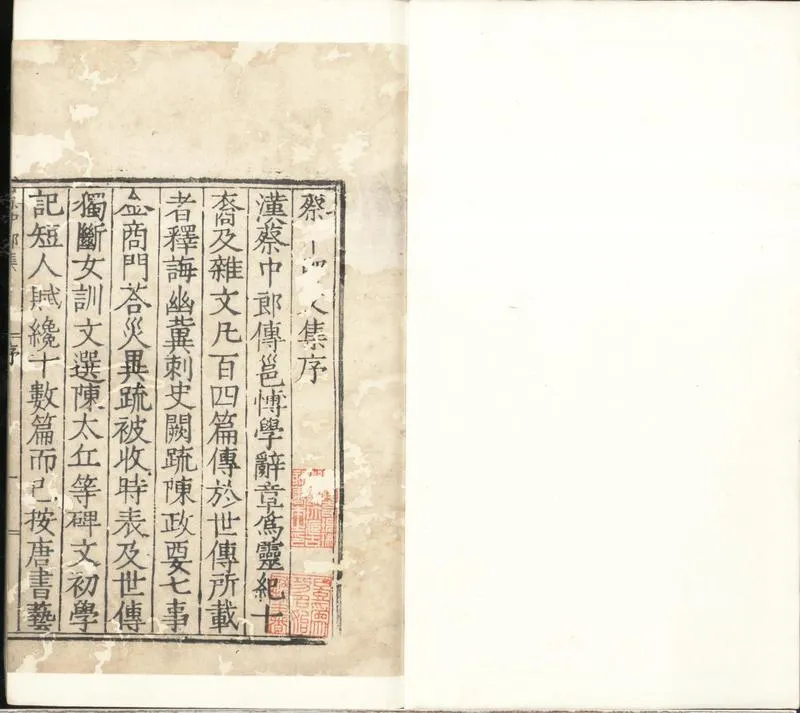 蔡中郎文集序
漢蔡中郎傳邕博學辭章爲靈紀十
裔及雜文凡百四篇傳於世傳所載
者釋誨幽冀刺史闕疏陳政要七事
金商門荅災異疏被收時表及世傳
獨斷女訓文選陳太丘等碑文初學
記短人賦纔十數篇而已按唐書藝
序
一